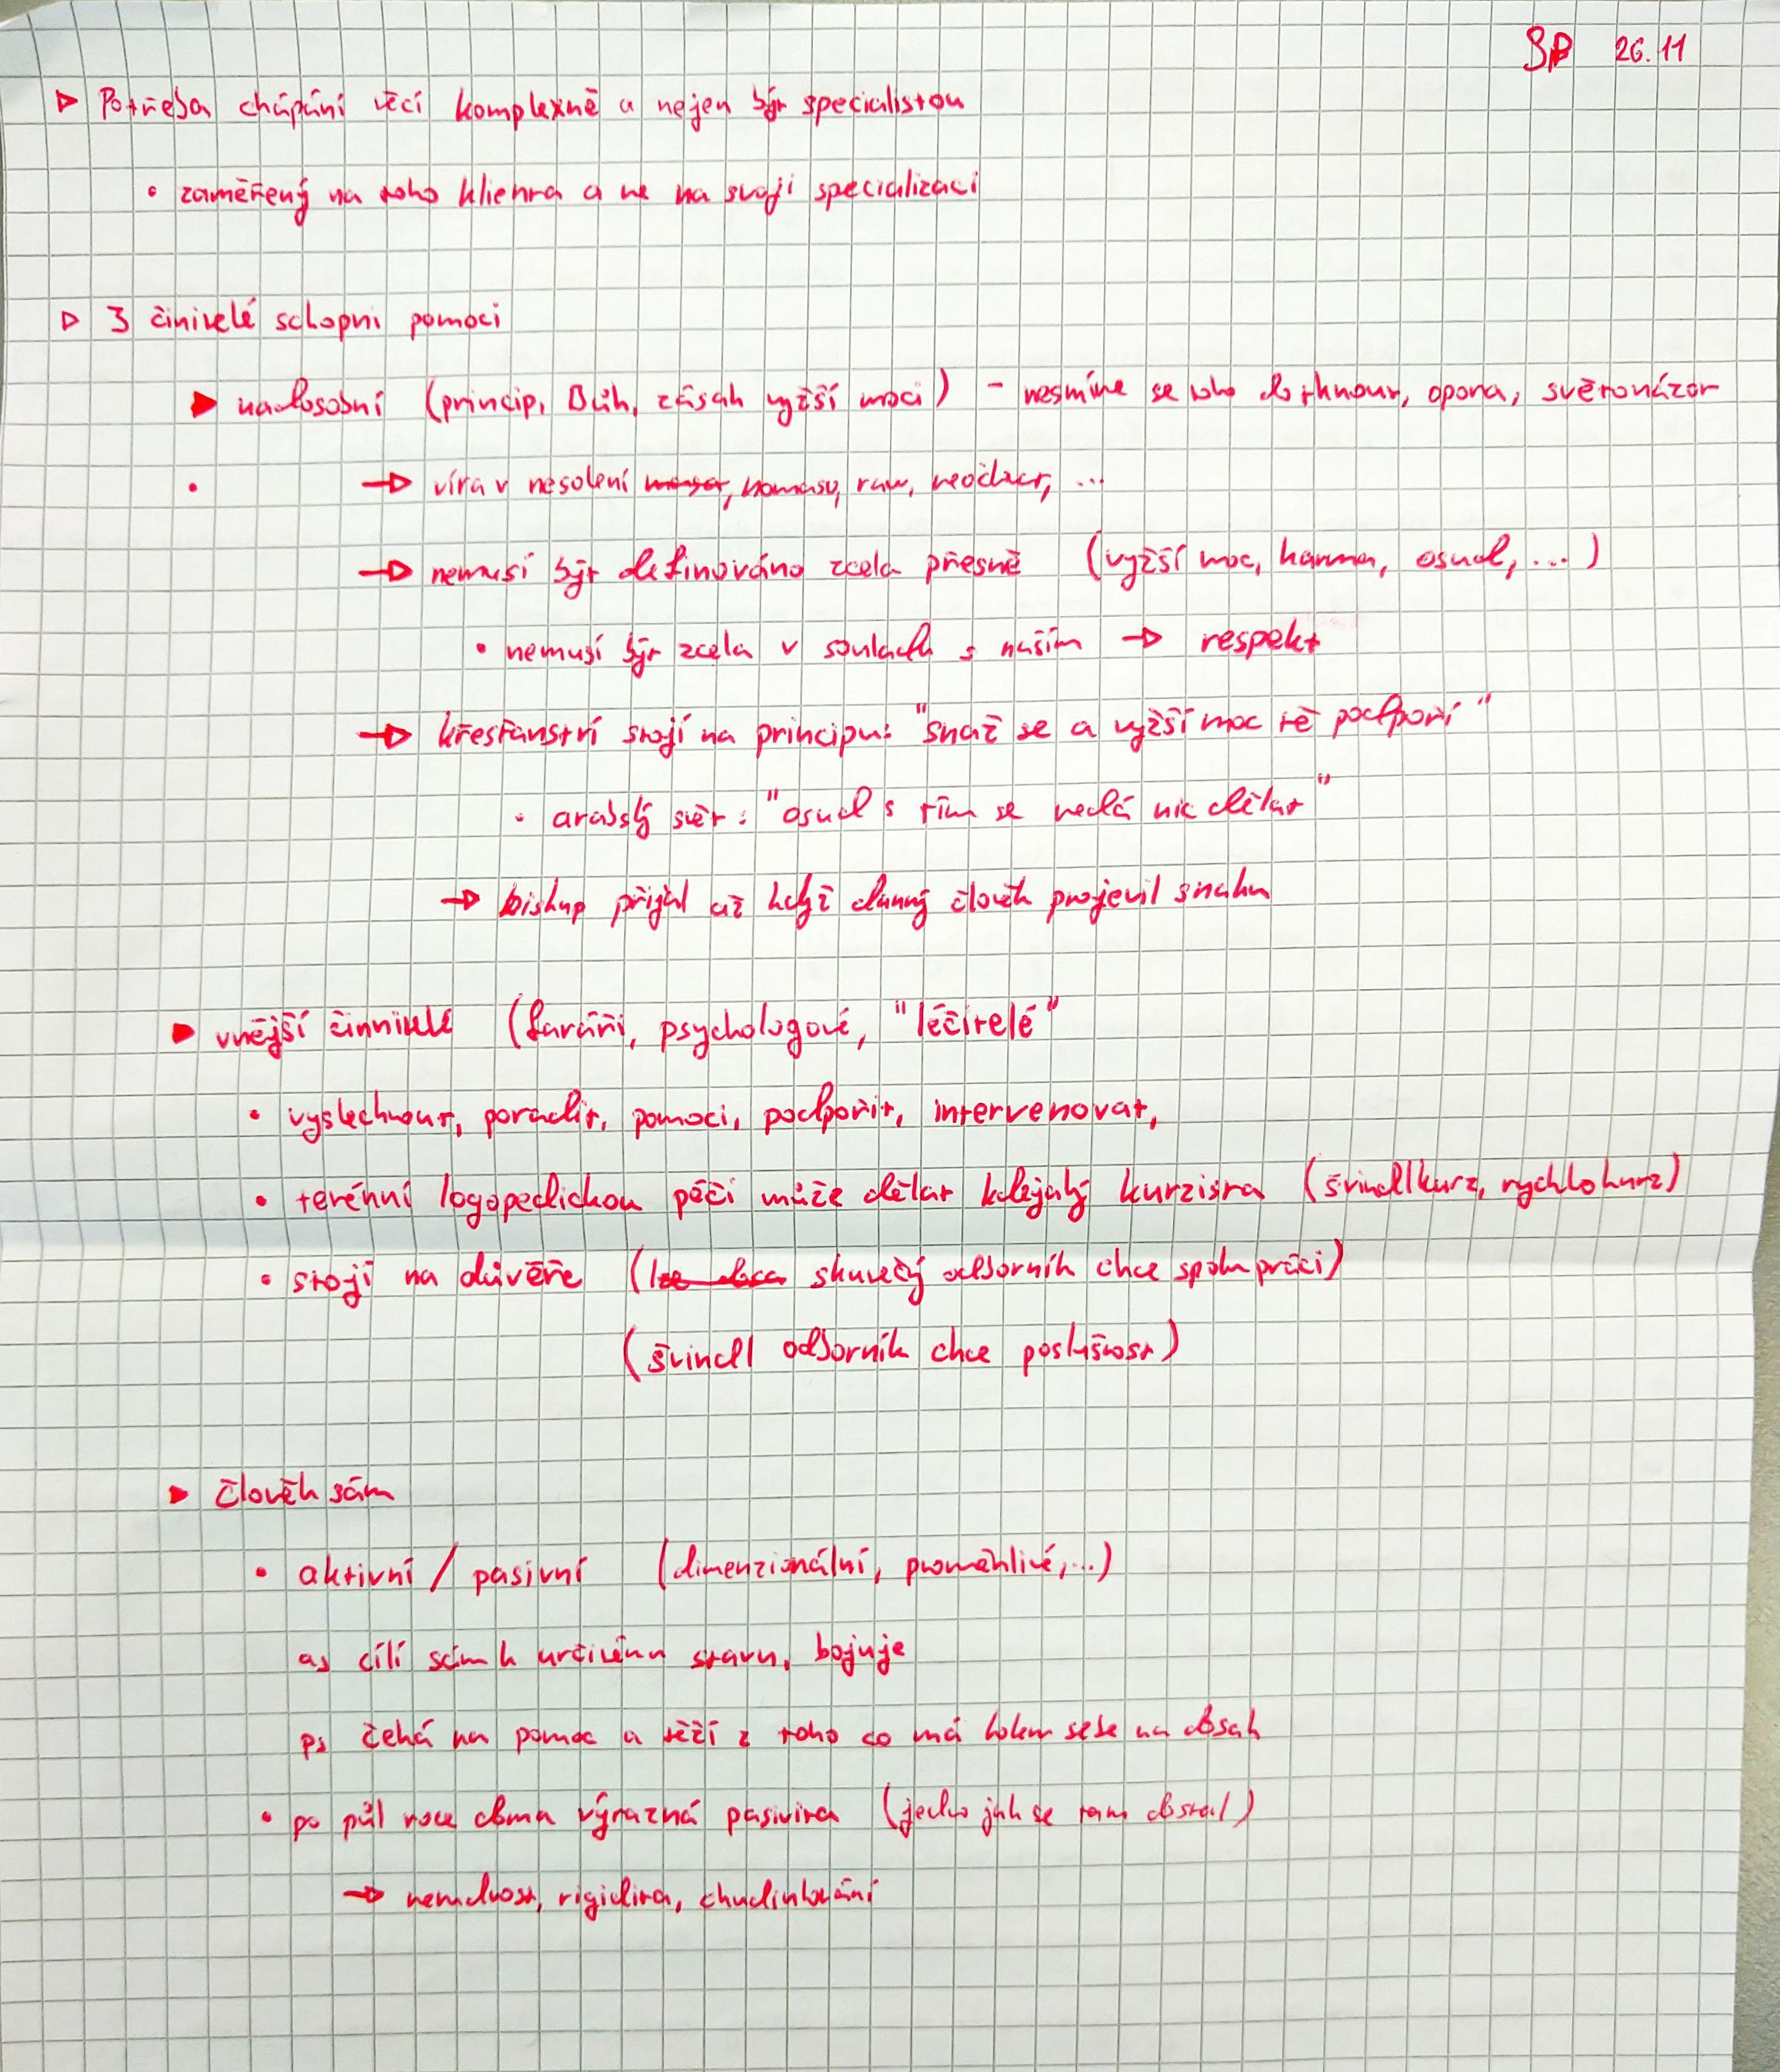 SP 26.11
▷ Potřeba chápání věcí komplexně a nejen být specialistou
• zaměřený na toho klienta a ne na svoji specializaci
▷ 3 činitelé schopni pomoci
▶ nadosobní (princip, Bůh, zásah vyžší moci) - nesmíme se toho dotknout, opora, světonázor
• → víra v nesolení, nomaso, raw, neočkovat, ...
→ nemusí být definováno zcela přesně (vyžší moc, karma, osud, ...)
• nemusí být zcela v souladu s naším → respekt
→ křesťanství stojí na principu: "snaž se a vyžší moc tě podpoří"
• arabský svět: "osud s tím se nedá nic dělat"
→ biskup přijal až když danný člověk projevil snahu
▶ vnější činnitelé (faráři, psychologové, "léčitelé"
• vyslechnout, poradit, pomoci, podpořit, intervenovat,
• terénní logopedickou péči může dělat kdejaký kurzista (švindlkurz, rychlokurz)
• stojí na důvěře (skutečný odborník chce spolupráci)
(švindl odborník chce poslušnost)
▶ člověk sám
• aktivní / pasivní (dimenzionální, proměnlivé, ...)
as cílí sám k určitému stavu, bojuje
ps čeká na pomoc a těží z toho co má kolem sebe na dosah
• po půl roce doma výrazná pasivita (jedno jak se tam dostal)
→ nemluvnost, rigidita, chudinkování